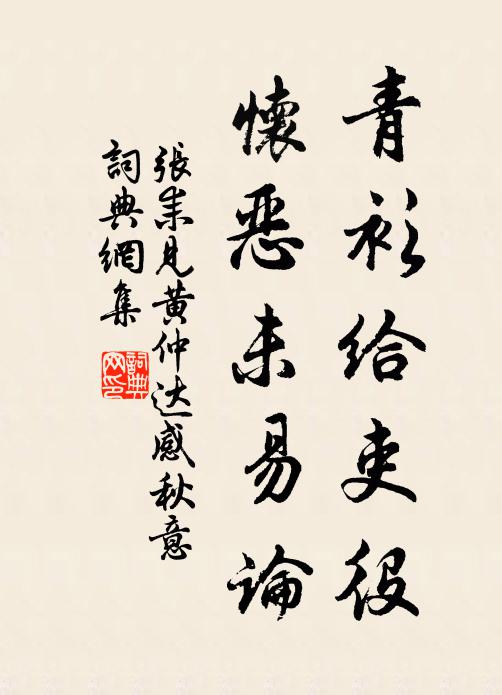 青衫给吏役
懷惡未易論
張耒見黄仲达感秋意
詞典網集
詞典网印